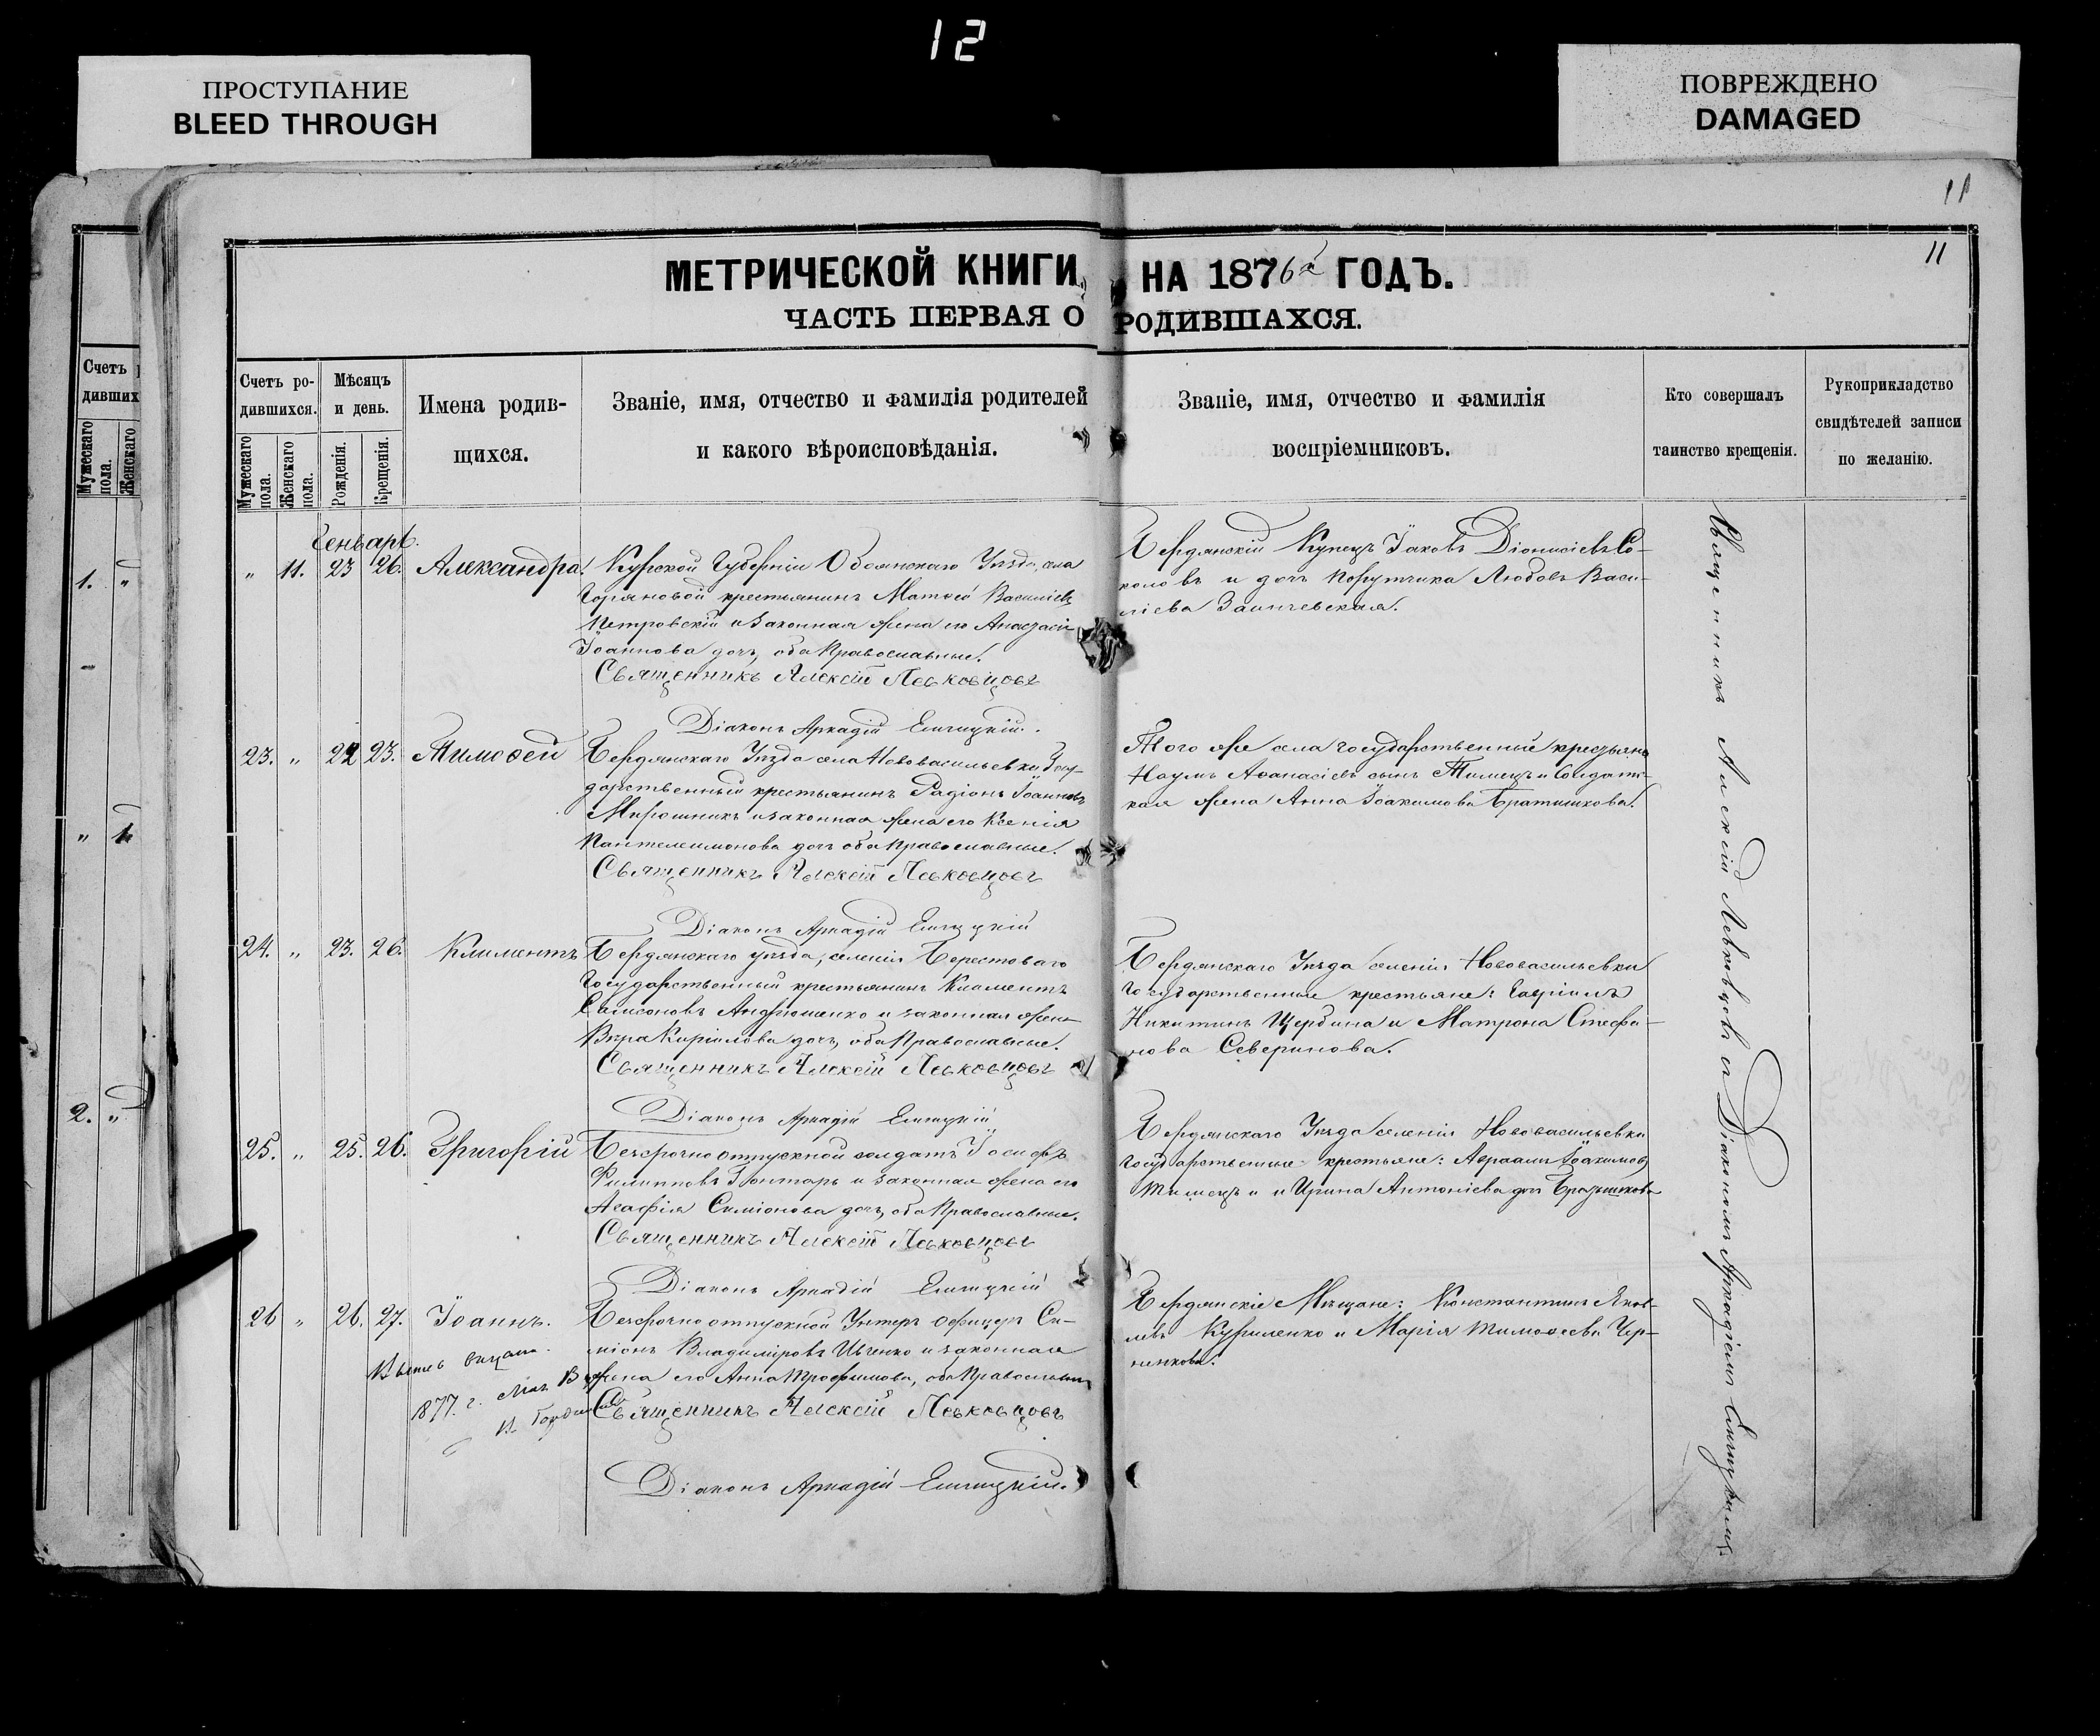 12
ПРОСТУПАНИЕ
BLEED THROUGH
ПОВРЕЖДЕНО
DAMAGED
11
11
МЕТРИЧЕСКОЙ КНИГИ, НА 1876й ГОДЪ.
ЧАСТЬ ПЕРВАЯ О РОДИВШАХСЯ.
Счетъ
дивших
Мужескаго пола.
Женскаго
1. "
" 1.
2. "
Счетъ ро-
дившихся.
Мужескаго пола.
Женскаго пола.
Мѣсяцъ
и день.
Рожденія.
Крещенія.
Имена родив-
щихся.
Званіе, имя, отчество и фамилія родителей
и какого вѣроисповѣданія.
Званіе, имя, отчество и фамилія
воспріемниковъ.
Кто совершалъ
таинство крещенія.
Рукоприкладство
свидѣтелей записи
по желанію.
Генварь.
" 11. 23 26. Александра.
Курской Губерніи Обоянскаго Уѣзда, села
крестьянинъ Матѳей Василіевъ
Петровскій и законная жена его Анастасія
Іоаннова дочь, оба Православные.
Священникъ Алексій Левковцовъ
Діаконъ Аркадій
Бердянскій Купецъ Іаковъ Діонисіевъ Со-
коловъ и дочь Порутчика Любовь Васи-
ліева
23. " 22 23. Тимоѳей
Бердянскаго Уѣзда села Нововасильевки Госу-
дарственный крестьянинъ Радіонъ Іоанновъ
Мирошникъ и законная жена его Ксенія
Пантелеимонова дочь оба Православные.
Священникъ Алексій Левковцовъ
Діаконъ Аркадій
Того же села государственные крестьяне
Наумъ Аѳанасіевъ сынъ и Солдатс-
кая жена Анна Іоакимова Братишкова.
24. " 23. 26. Климентъ
Бердянскаго уѣзда, селенія Берестоваго
Государственный крестьянинъ Климентъ
Самсоновъ Андрюшенко и законная жена
Вѣра Кирилова дочь, оба Православные.
Священникъ Алексій Левковцовъ
Діаконъ Аркадій
Бердянскаго Уѣзда селенія Нововасильевки
Государственные крестьяне: Гавріилъ
Никитинъ Щербина и Матрона Стефа-
нова Северинова.
25. " 25. 26. Григорій
Безсрочноотпускной солдатъ Іосифъ
Филипповъ Гонтарь и законная жена его
Агафія Симіонова дочь, оба Православные.
Священникъ Алексій Левковцовъ
Діаконъ Аркадій
Бердянскаго Уѣзда селенія Нововасильевки
Государственные крестьяне: Авраамъ Іоакимовъ
и Ирина Антоніева дочь Братишкова
26 " 26. 27. Іоаннъ.
Безсрочноотпускной Унтеръ Офицеръ Си-
міонъ Владиміровъ Ивченко и законная
жена его Анна Трофимова, оба Православные
Священникъ Алексій Левковцовъ
Діаконъ Аркадій
1877. г.
Бердянскіе Мѣщане: Константинъ Яков-
левъ Куриленко и Марія Тимоѳеева Чер-
ненкова.
Священникъ Алексій Левковцовъ съ Діакономъ Аркадіемъ